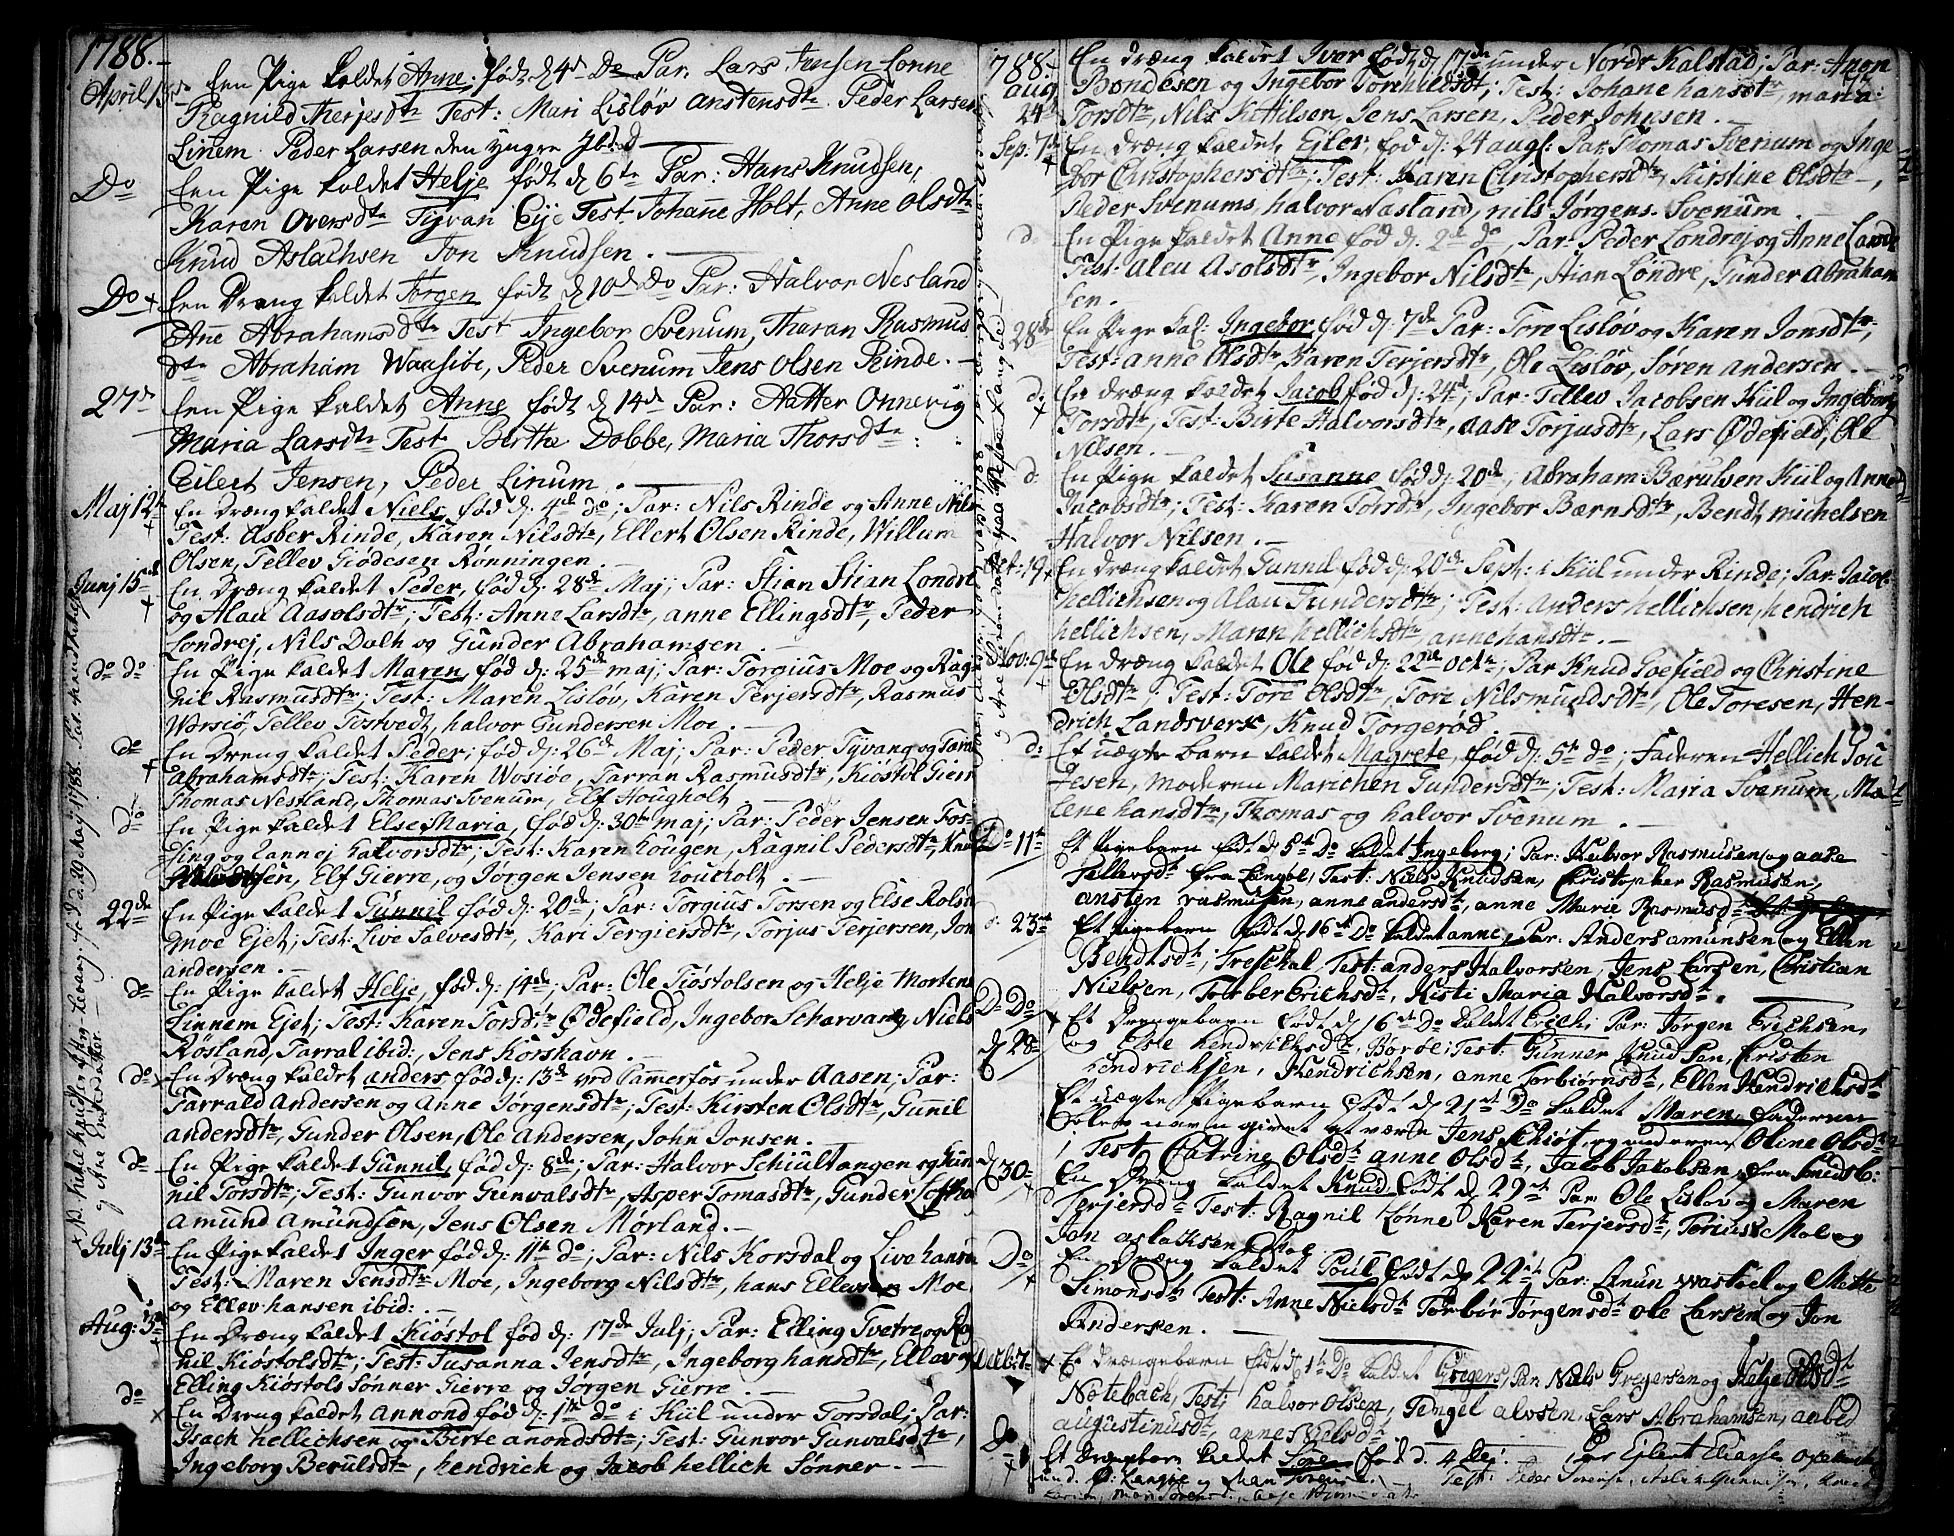 1788.
April 13de En Pige kaldet Anne, født d 4de Do Par. Lars Jensen Lønne
Ragnild Therjesdtr Test: Mari Lisløv Anstensdtr. Peder Larsen
Linem. Peder Larsen den yngre ibid
Do En Pige kaldet Helje født d 6te Par: Hans Knudsen,
Karen Oversdtr Tyvan Eje Test: Johane Holt, Anne Olsdtr
Knud Aslachsen Jon Knudsen.
Do En Dreng kaldet Jørgen født d 10de Do Par: Halvor Nesland
Ane Abrahamsdtr Test Ingebor Svenum, Tharan Rasmus
dtr Abraham Waasiøe, Peder Svenum Jens Olsen Rinde.
27de En Pige kaldet Anne født d 14de Par: Aatter Onnevig
Maria Larsdtr Test Berthe Dobbe, Maria Thorsdtr:
Eilert Jensen, Peder Linum.
Maj 12te En Dræng kaldet Niels, fød d: 4de do; Par: Nils Rinde og Anne Nils
Test: Asber Rinde, Karen Nilsdtr, Ellert Olsen Rinde, Willum
Olsen, Tellev Giødesen Rønningen.
Junj 15de En Dræng kaldet Peder, fød d: 28de Maj; Par: Stian Stian Londre
og Alau Aasolsdtr; Test: Anne Larsdtr, anne Ellingsdtr, Peder
Londrej, Nils Dalh og Gunder Abrahamsen.
do do En Pige kaldet Maren, fød d: 25de maj; Par: Torgius Moe og Rag
nil Rasmusdtr; Test: Maren Lisløv, Karen Terjersdtr, Rasmus
Worsiø, Tellev Tvstvedt, halvor Gundersen Moe.
do En Dreng kaldet Peder; fød d: 26de Maj; Par: Peder Tyvang og
Abrahamsdtr; Test: Karen Wosiøe, Tarran Rasmusdtr, Kiøstol Gierr
Thomas Nestland, Thomas Svenum, Elf Hougholt.
do En Pige kaldet Else Maria, fød d: 30te maj; Par: Peder Jensen Fos-
sing og Lannej halvorsdtr; Test: Karen Lougen, Ragnil Pedersdtr, Knu
Halvorsen, Elf Gierre, og Jørgen Jensen Houcholt.
22de En Pige kaldet Gunnil fød d: 20de; Par: Torgius Torsen og Else Rols
moe Ejet; Test: Live Salvesdtr, Kari Tergiersdtr, Torjus Terjersen, Jon
andersen.
do En Pige kaldet Helje, fød d: 14de; Par: Ole Tiøstolsen og Helje Mortens
Linnem Ejet; Test: Karen Torsdtr Ødefield, Ingebor Scharvang Niels
Røsland, Tarral ibid:, Jens Korshavn.
do En Dræng kaldet anders, fød d: 13de ved Cammerfos under Aasen; Par:
Tarrald Andersen og Anne Jørgensdtr; Test: Kirsten Olsdtr, Gunnil
andersdtr, Gunder Olsen, Ole Andersen, John Jonsen.
do En Pige kaldet Gunnil, fød d: 8de; Par: Halvor Schiultangen og Gun
nil Torsdtr; Test: Gunvor Gunvalsdtr, Asper Tomasdtr, Gunder Lofth
Amund Amundsen, Jens Olsen Mørland.
Julj 13de En Pige kaldet Inger fød d: 11te do; Par: Nils Korsdal og Live hansd
Test: Maren Jensdtr Moe, Ingeborg Nilsdtr, hans Ellevsen Moe
og Ellev hansen ibid:.
Aug: 3de En Dræng kaldet Kiøstol fød d: 17de Julj; Par: Elling Tvetre og Rag
nil Kiøstolsdtr; Test: Susanna Jensdtr, Ingeborg hansdtr, Ellav og
Elling Kiøstols Sønner Gierre og Jørgen Gierre.
do En Dreng kaldet Annond fød d: 1te do i Kiil under Torsdal; Par:
Isach hellichsen og Birte anondsdtr; Test: Gunvor Gunvalsdtr,
Ingeborg Berulsdtr, hendrich og Jacob hellich Sønner.
1788.
aug 24de En Dræng kaldet Iver fød d 17de under Nordr Kalstad; Par: Anon
Bondesen og Ingebor Torchildsdt; Test: Johane hansdtr, maria
Torsdtr, Nils Kittilsen, Jens Larsen, Peder Johnsen.
Sep. 7de En Dræng kaldet Eiler, fød d: 24 augl: Par. Thomas Svenum og Inge
bor Christophersdtr; Test: Karen Christophersdtr, Kirstine Olsdtr,
Peder Svenums, halvor Nasland, nils Jørgens. Svenum.
d. En Pige kaldet Anne fød d: 2de do, Par: Peder Londrej og Anne Larsdtr
Test: Aleu Asolsdtr, Ingebor Nilsdtr, Stian Løndre, Gunder Abraham
sen.
28de En Pige kal: Ingebor, fød d: 7de Par: Tore Lisløv og Karen Jonsdtr,
Test: anne Olsdtr, Karen Terjersdtr, Ole Lisløv, Søren andersen.
d. En dræng kaldet Jacob fød d: 24d; Par: Tellev Jacobsen Kiil og Ingeborg
Torsdtr, Test: Birte Halvorsdtr, aase Torjusdtr, Lars Ødefield, Ole
Nilsen.
d En Pige kaldet Susanne fød d: 20de, Abraham Bærulsen Kiil og Anne
Jacobsdtr; Test: Karen Torsdtr, Ingebor Bærnsdtr, Bendt michelsen
Halvor Nilsen.
Oct: 19 En Dræng kaldet Gunnil fød d: 20de Sept: i Kiil under Rinde; Par: Jacob
hellichsen og Alau Gundersdtr; Test: Anders hellichsen, hendrich
hellichsen, Maren hellichsdtr, anne hansdtr.
Nov: 9de En Dræng kaldet Ole fød d: 22de Octr; Par Knud Soefield og Christine
Olsdtr. Test: Tore Olsdtr, Tore Nilsmundsdtr, Ole Toresen, Hen-
drich Landsverk, Knud Torgerød
d: Et uægte barn kaldet Magrete, fød d: 5te do; Faderen Hellich Tou
tesen, moderen Marichen Gundersdtr; Test: Maria Svenum, Ma
lene hansdtr, Thomas og halvor Svenum.
Do 11te Et Pigebarn født d 8de Do kaldet Ingeborg; Par: Halvor Rasmusen og aase
Tellevsdt fra Langøl, Test: Niels Knudsen, Christopher Rasmusen,
ansten rasmusen, anne andersdt, anne Marie Rasmusdt
d: 23de Et Pigebarn født d 16de Do kaldet anne, Par: Anders amunsen og Ellen
Bendtsdt, Treschal, Test: anders Halvorsen, Jens Larsen, Christian
Nielsen, Torber Erichsdt, Kisti Maria Halvorsdt.
D Do Et Drengebarn født d 16de Do kaldet Erich; Par: Jørgen Erichsen,
d 28 og Else hendrichsdt, Børde; Test: Gunner Knudsen, Cristen
Hendrichsen, Hendrichsen, anne Torbiørnsdt, Ellen Hendrichsdt
Et uægte Pigebarn født d 21st Do kaldet Maren Faderens
navn givet at være Jens Schiøt, og moderen Oline Olsdt
Test Catrine Olsdt anne Olsdt, Jacob Jacobsen fra
d 30 En Dreng kaldet Knud, født d 29de Par: Ole Lisløv og Maren
Terjersdt Test: Ragnil Lønne Karen Terjersdt, Torius Mol og
Jon aslaksen Moe
Do En Dræng kaldet Poul født d 22de Par: Anun Wasfoel og Mette
Simonsdt Test: Anne Nielsdt Torbør Jørgensdt Ole Larsen og Jon
Andersen.
Decb: 7 Et Drængebarn født d 1te Do kaldet Gregers, Par Niels Gregersen og Helje Olsdt
Notebach, Test: halvor Olsen, Tengel alvsen, Lars Abrahamsen,
augustinusdt, anne Nielsdt.
Do Et Drengebarn kaldet Tore fød d. 4 dej. Par Ejlert Eliase